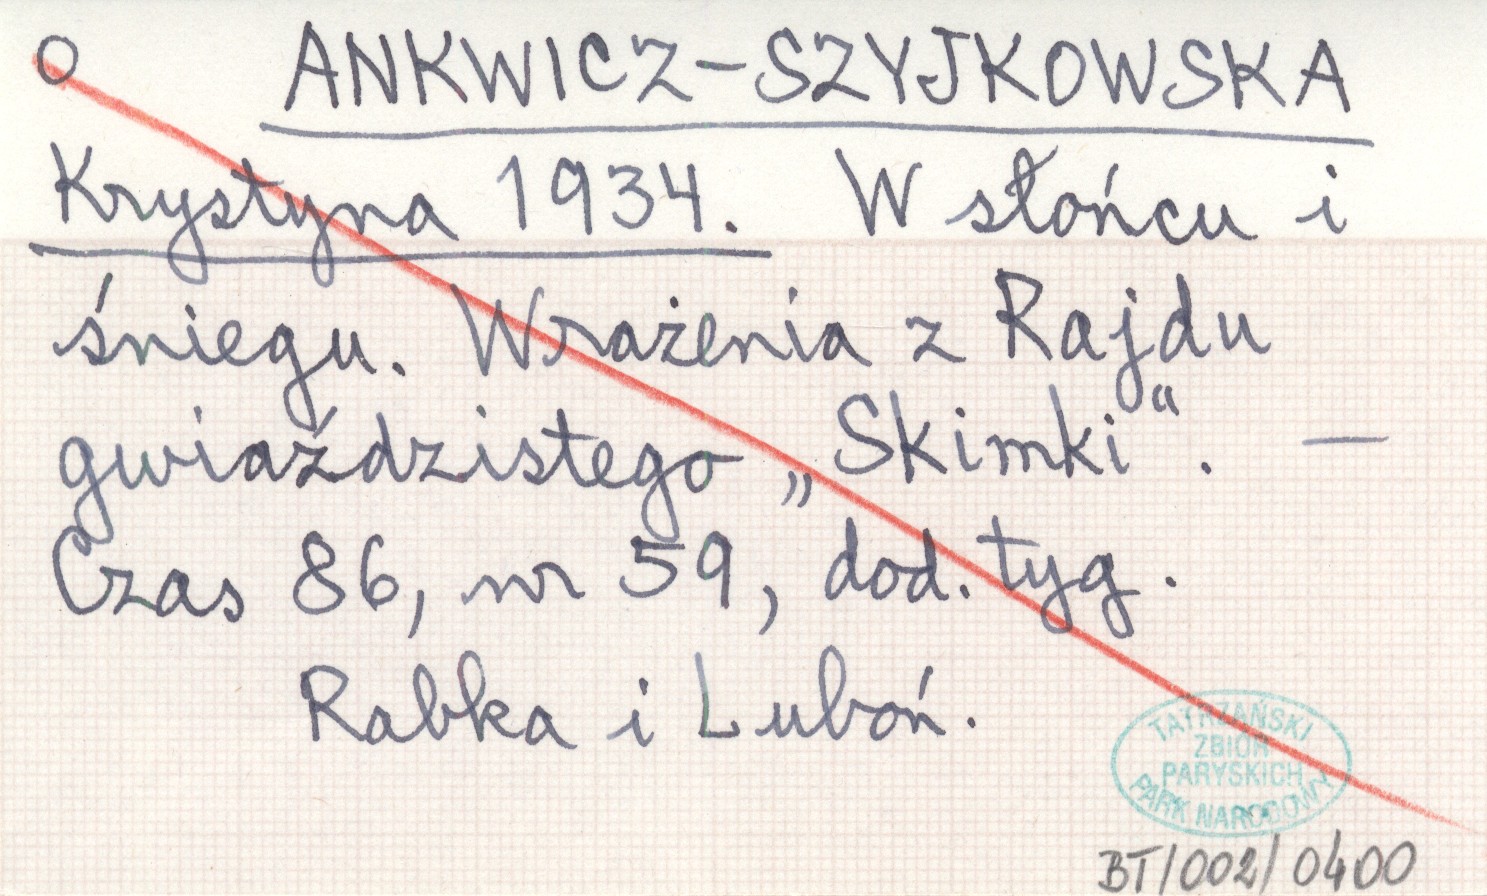 O ANKWICZ-SZYJKOWSKA
Krystyna 1934. W słońcu i
śniegu. Wrażenia z Rajdu
gwiaździstego „Skimki“. —
Czas 86, nr 59, dod. tyg.
Rabka i Luboń.
TATRZAŃSKI
ZBIÓR
PARYSKICH
PARK NARODOWY
BT/002/0400